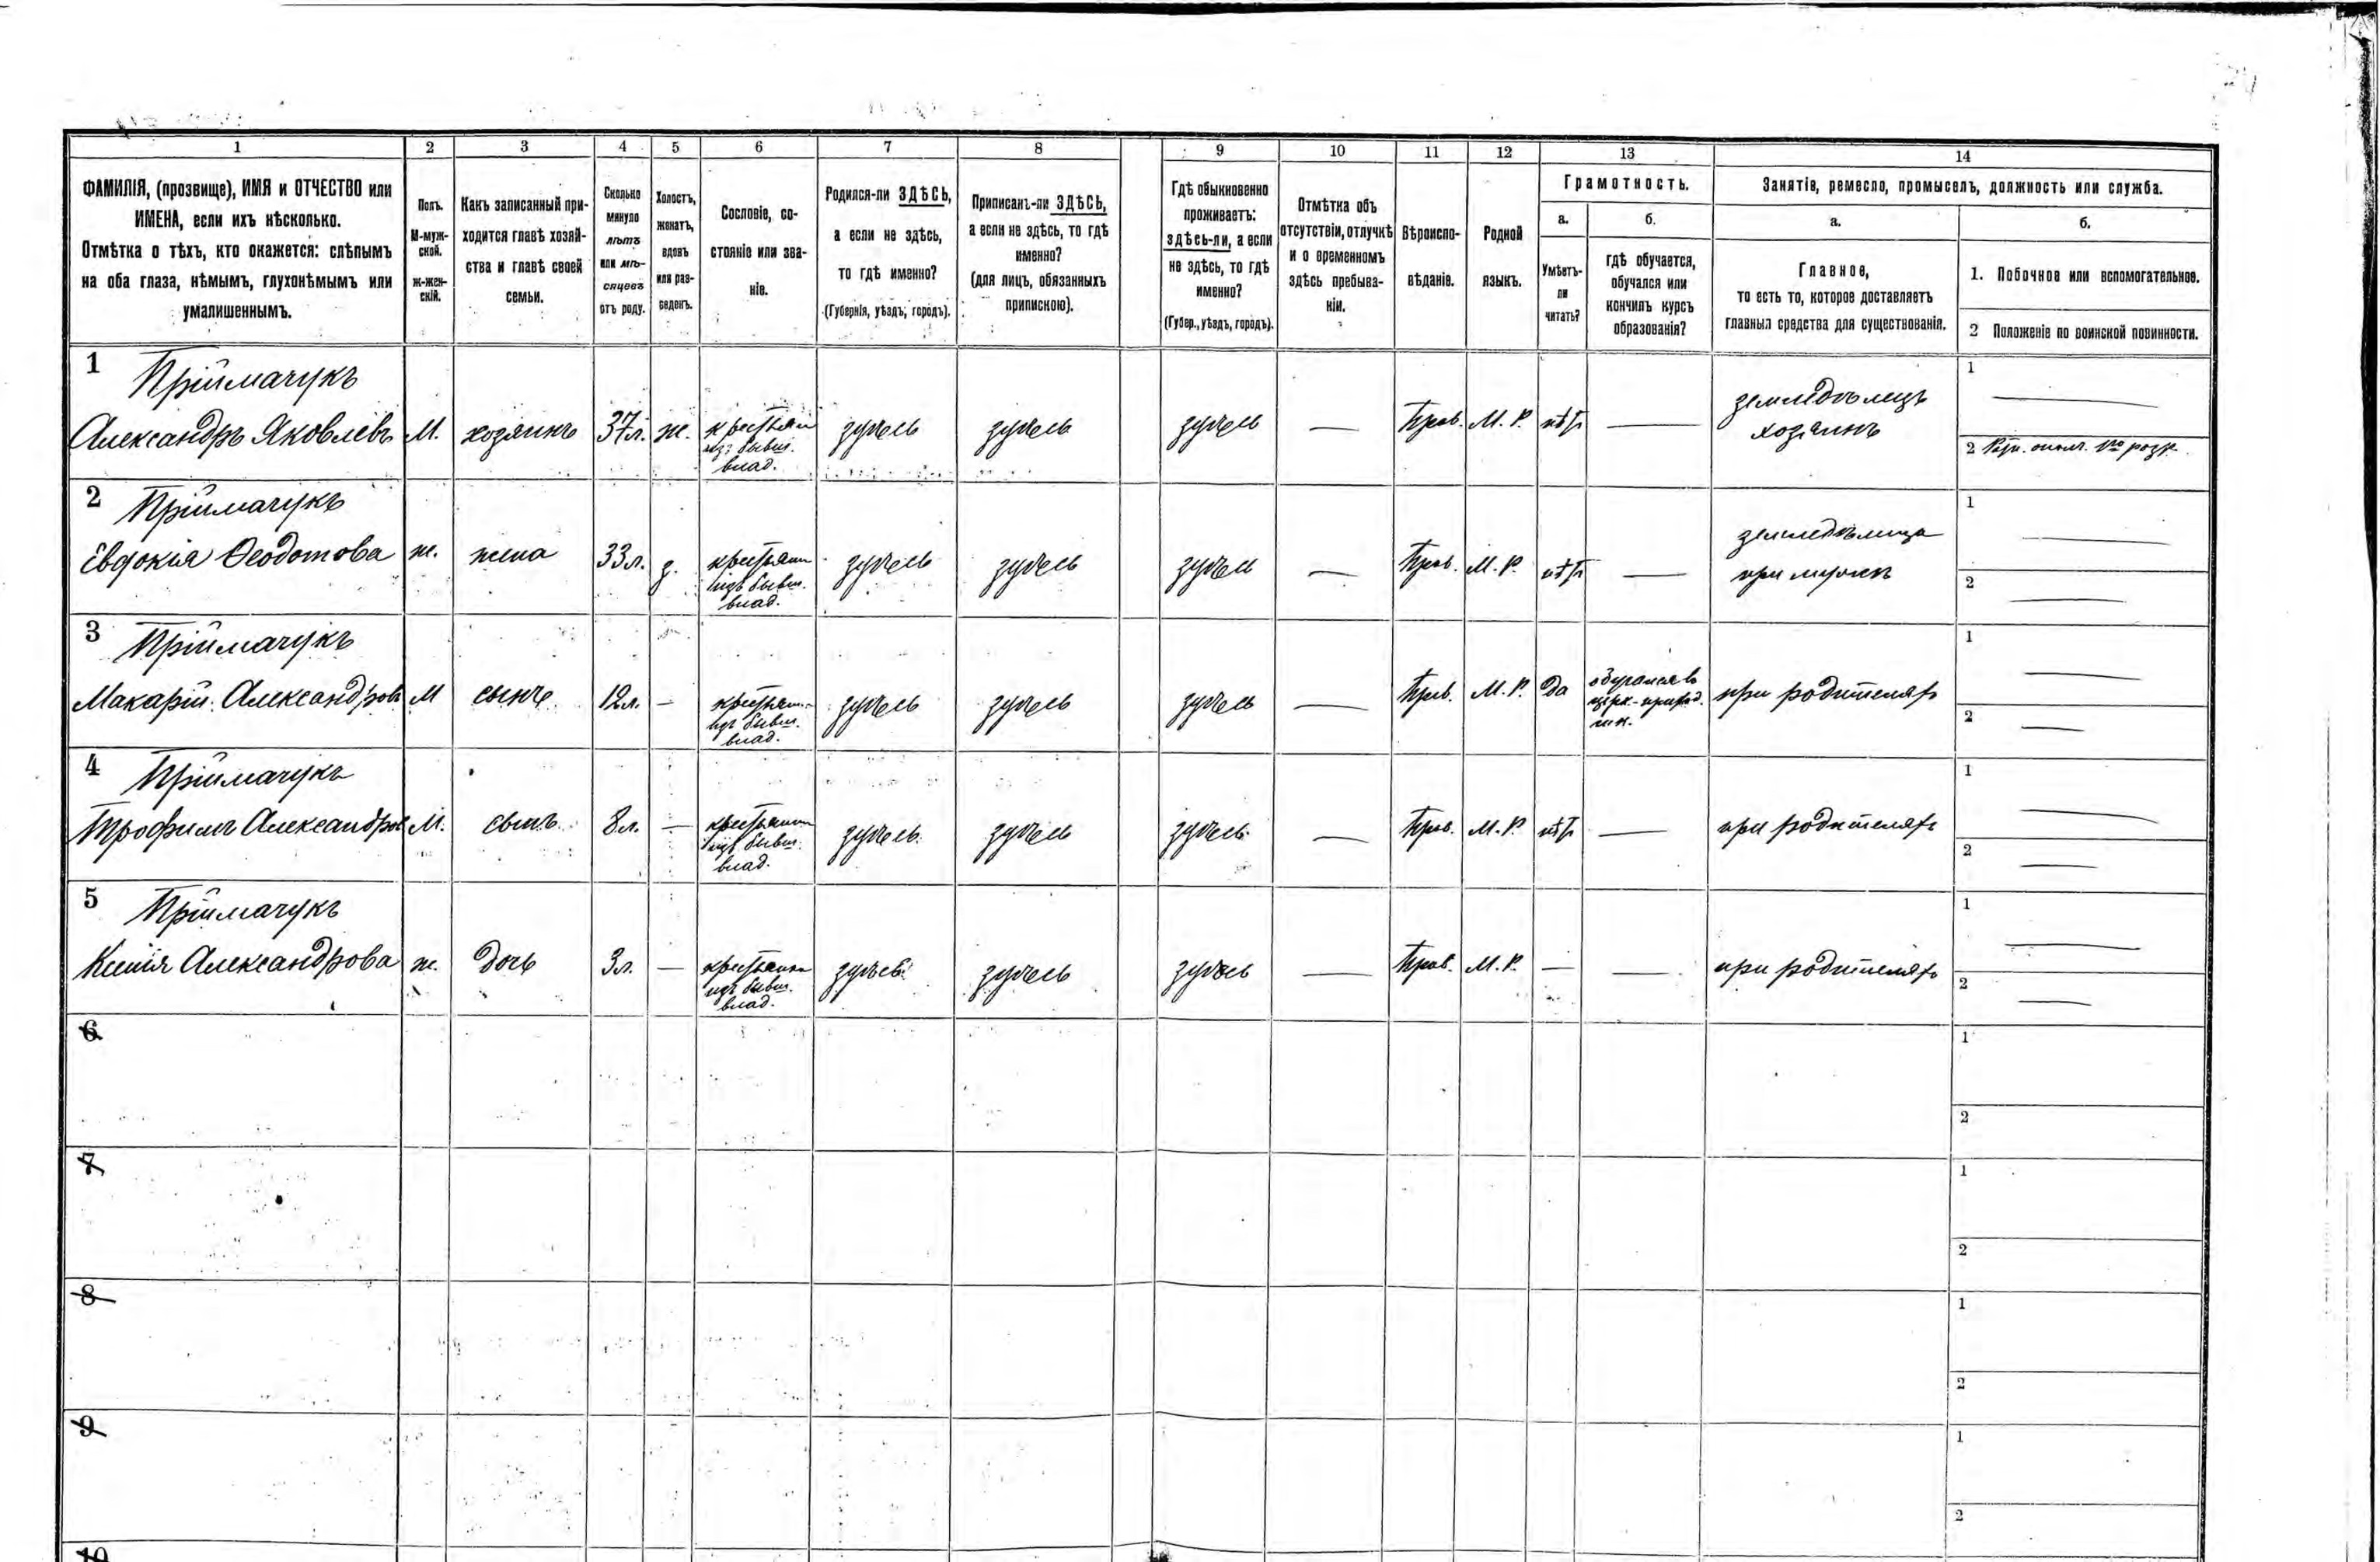 1 2 3 4 5 6 7 8 9 10 11 12 13 14
ФАМИЛІЯ, (прозвище), ИМЯ и ОТЧЕСТВО или
ИМЕНА, если ихъ нѣсколько.
Отмѣтка о тѣхъ, кто окажется: слѣпымъ
на оба глаза, нѣмымъ, глухонѣмымъ или
умалишеннымъ.
Полъ.
М-муж-
ской.
ж-жен-
скій.
Какъ записанный при-
ходится главѣ хозяй-
ства и главѣ своей
семьи.
Сколько
минуло
лѣтъ
или мѣ-
сяцевъ
отъ роду.
Холостъ,
женатъ,
вдовъ
или раз-
веденъ.
Сословіе, со-
стояніе или зва-
ніе.
Родился-ли ЗДѢСЬ,
а если не здѣсь,
то гдѣ именно?
(Губернія, уѣздъ, городъ).
Приписанъ-ли ЗДѢСЬ,
а если не здѣсь, то гдѣ
именно?
(для лицъ, обязанныхъ
припискою).
Гдѣ обыкновенно
проживаетъ:
здѣсь-ли, а если
не здѣсь, то гдѣ
именно?
(Губер., уѣздъ, городъ).
Отмѣтка объ
отсутствіи, отлучкѣ
и о временномъ
здѣсь пребыва-
ніи.
Вѣроиспо-
вѣданіе.
Родной
языкъ.
Грамотность.
а.
Умѣетъ-
ли
читать?
б.
гдѣ обучается,
обучался или
кончилъ курсъ
образованія?
Занятіе, ремесло, промыселъ, должность или служба.
а.
Главное,
то есть то, которое доставляетъ
главныя средства для существованія.
б.
1. Побочное или вспомогательное.
2 Положеніе по воинской повинности.
1 Пріймачукъ
Александръ Яковлевъ М. хозяинъ 37л. ж. крестьян
изъ бывш.
влад.
здѣсь здѣсь здѣсь — Прав. М. Р. нѣтъ —
земледѣлецъ
хозяинъ
1 —
2
2 Пріймачукъ
Евдокія Ѳеодотова ж. жена 33л. з. крестьян
изъ бывш.
влад.
здѣсь здѣсь здѣсь — Прав. М. Р. нѣтъ —
земледѣлица
при мужѣ
1 —
2 —
3 Пріймачукъ
Макарій Александровъ М сынъ 12л. — крестьян
изъ бывш.
влад.
здѣсь здѣсь здѣсь — Прав. М. Р. да
обучался въ
церк.-приход.
шк.
при родителяхъ
1 —
2 —
4 Пріймачукъ
Трофимъ Александров М. сынъ 8л. — крестьянин
изъ бывш.
влад.
здѣсь здѣсь здѣсь — Прав. М. Р. нѣтъ — при родителяхъ
1 —
2 —
5 Пріймачукъ
Ксенія Александрова ж. дочь 3л. — крестьянка
изъ бывш.
влад.
здѣсь здѣсь здѣсь — Прав. М. Р. — — при родителяхъ
1 —
2 —
6
1
2
7
1
2
8
1
2
9
1
2
10